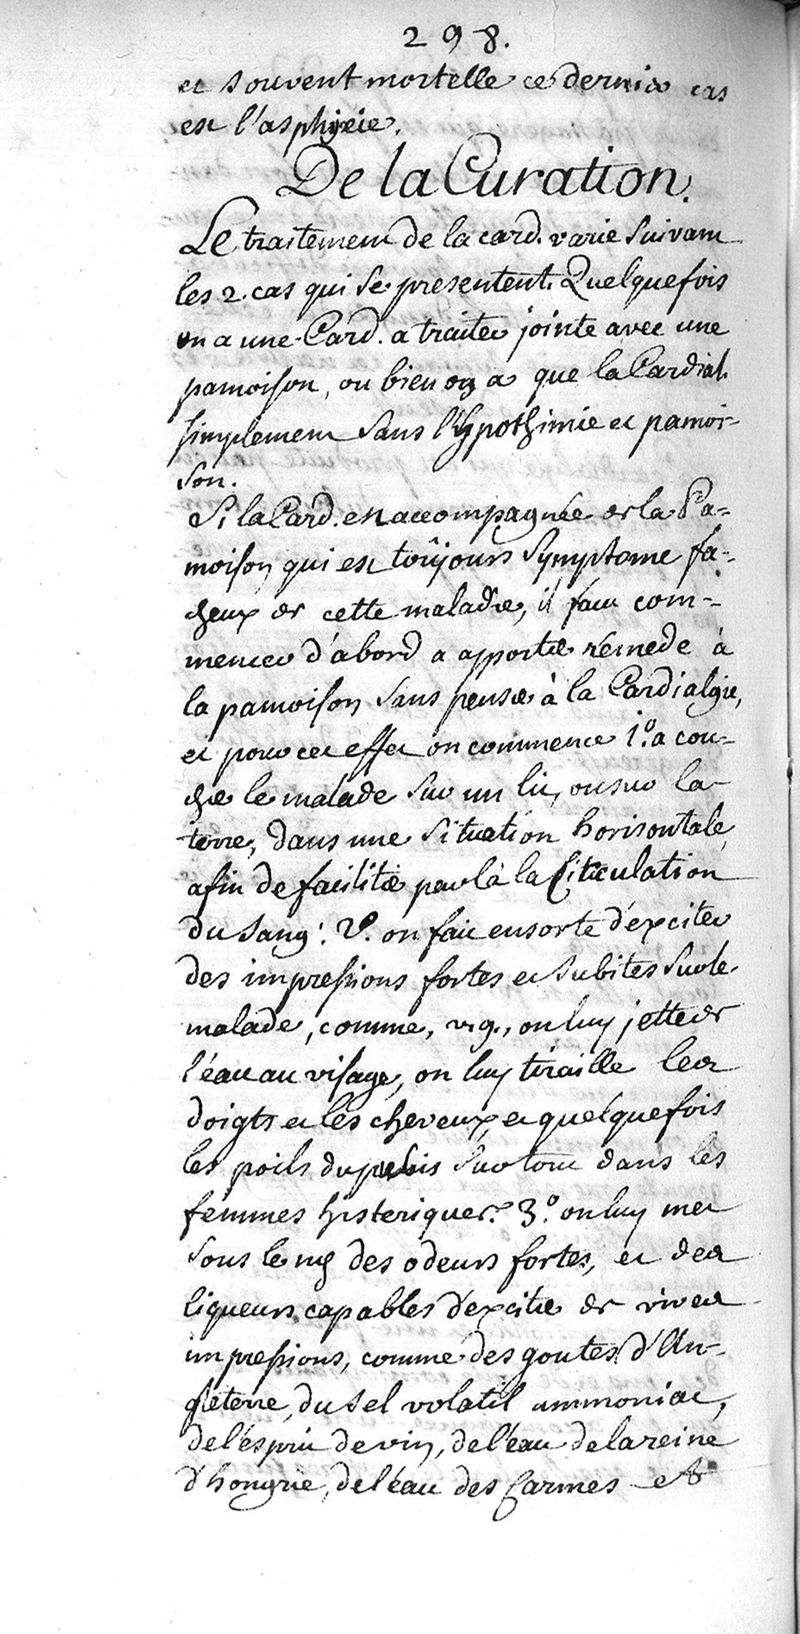 298.
et souvent mortelle ce dernier cas
est l'asphyxie.
De la Curation.
Le traitement de la card. varie suivant
les 2. cas qui se presentent. Quelquefois
on a une Card. a traiter jointe avec une
pamoison, ou bien on a que la Cardial.
simplement sans l'hypothimie et pamoi-
son.
Si la Card. est accompagnée de la Pa-
moison qui est toûjours symptome fa-
cheux de cette maladie, il faut com-
mencer d'abord a apporter rémede à
la pamoison sans penser à la Cardialgie,
et pour cet effet on commence 1.° a cou-
cher le malade sur un lit, ou sur la
terre, dans une situation horisontale,
afin de faciliter par là la Circulation
du sang. 2.° on fait ensorte d'exciter
des impressions fortes et subites sur le
malade, comme, v.g., on luy jette de
l'éau au visage, on luy tiraille les
doigts et les cheveux, et quelquefois
les poils du pubis surtout dans les
femmes histeriques. 3.° on luy met
sous le nés des odeurs fortes, et des
liqueurs capables d'exciter de vives
impressions, comme des goutes d'An-
gleterre, du sel volatil ammoniac,
de l'ésprit de vin, de l'eau de la reine
d'hongrie, de l'éau des Carmes &c